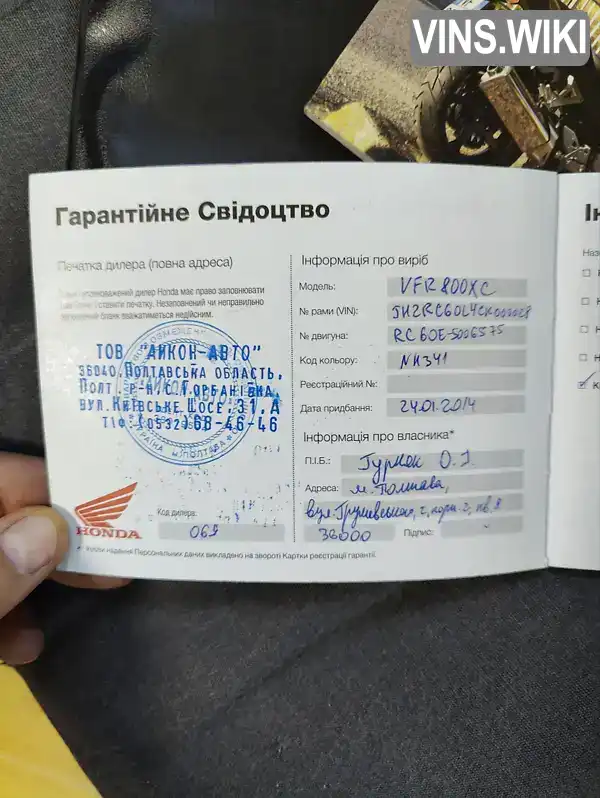 VINS.WIKI
Гарантійне Свідоцтво
Печатка дилера (повна адреса)
уповноважений дилер Honda має право заповнювати
ставити печатку. Незаповнений чи неправильно
бланк вважатиметься недійсним.
ТОВ "АЙКОН-АВТО"
36040, ПОЛТАВСЬКА ОБЛАСТЬ,
ПОЛТ. Р-Н, С. ГОРБАНІВКА
ВУЛ. КИЇВСЬКЕ ШОСЕ, 31, А
68-46-46
HONDA
Код дилера:
069
Інформація про виріб
Модель: VFR800XC
№ рами (VIN):
№ двигуна: RC60E-5006575
Код кольору: NH341
Реєстраційний №:
Дата придбання: 24.01.2014
Інформація про власника*
П.І.Б.: О.
Адреса: м. Полтава,
вул.
36000 Підпис:
надання Персональних даних викладено на звороті Картки реєстрації гарантії.
Ін